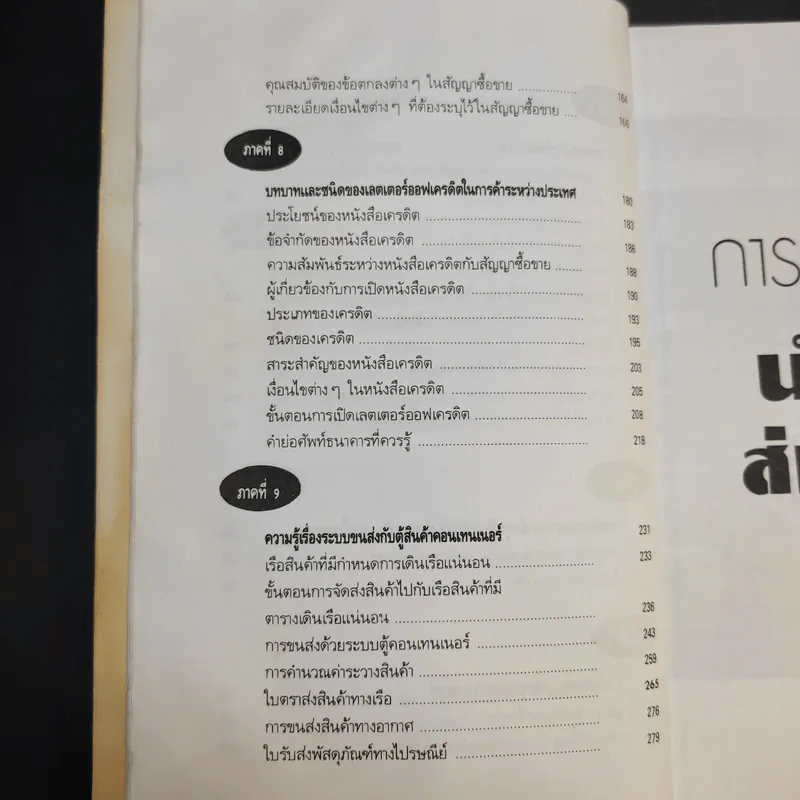 คุณสมบัติของข้อตกลงต่างๆ ในสัญญาซื้อขาย .................. 164
รายละเอียดเงื่อนไขต่างๆ ที่ต้องระบุไว้ในสัญญาซื้อขาย .... 166
ภาคที่ 8
บทบาทและชนิดของเลตเตอร์ออฟเครดิตในการค้าระหว่างประเทศ 180
ประโยชน์ของหนังสือเครดิต .................. 183
ข้อจำกัดของหนังสือเครดิต .................. 186
ความสัมพันธ์ระหว่างหนังสือเครดิตกับสัญญาซื้อขาย ........ 188
ผู้เกี่ยวข้องกับการเปิดหนังสือเครดิต .................. 190
ประเภทของเครดิต .................. 193
ชนิดของเครดิต .................. 195
สาระสำคัญของหนังสือเครดิต .................. 203
เงื่อนไขต่างๆ ในหนังสือเครดิต .................. 205
ขั้นตอนการเปิดเลตเตอร์ออฟเครดิต .................. 208
คำย่อศัพท์ธนาคารที่ควรรู้ .................. 218
ภาคที่ 9
ความรู้เรื่องระบบขนส่งกับตู้สินค้าคอนเทนเนอร์ 231
เรือสินค้าที่มีกำหนดการเดินเรือแน่นอน .................. 233
ขั้นตอนการจัดส่งสินค้าไปกับเรือสินค้าที่มี
ตารางเดินเรือแน่นอน .................. 236
การขนส่งด้วยระบบตู้คอนเทนเนอร์ .................. 243
การคำนวณค่าระวางสินค้า .................. 259
ใบตราส่งสินค้าทางเรือ .................. 265
การขนส่งสินค้าทางอากาศ .................. 276
ใบรับส่งพัสดุภัณฑ์ทางไปรษณีย์ .................. 279
การ